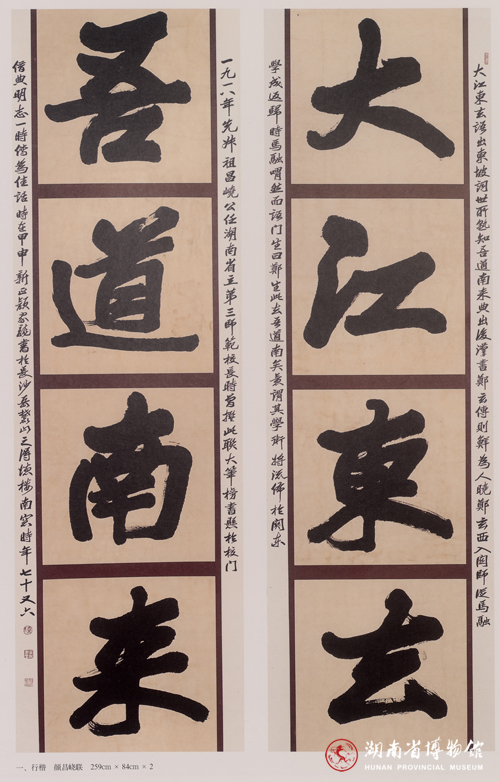 大江東去語出東坡詞世所熟知吾道南来典出後漢書鄭玄傳則鮮為人曉鄭玄西入関師從馬融
大江東去
學成返歸時馬融喟然而語门生曰鄭生此去吾道南矣蓋謂其學術將流佈於関东
一九一八年先叔祖昌嶢公任湖南省立第三師範校長時曾撰此聯大筆榜書懸於校门
吾道南来
借典明志一時偕為佳話時在甲申新正颜家龍書於長沙岳麓山之 楼南窓時年七十又六
一、行楷 颜昌峣联 259cm × 84cm × 2
湖南省博物館
HUNAN PROVINCIAL MUSEUM